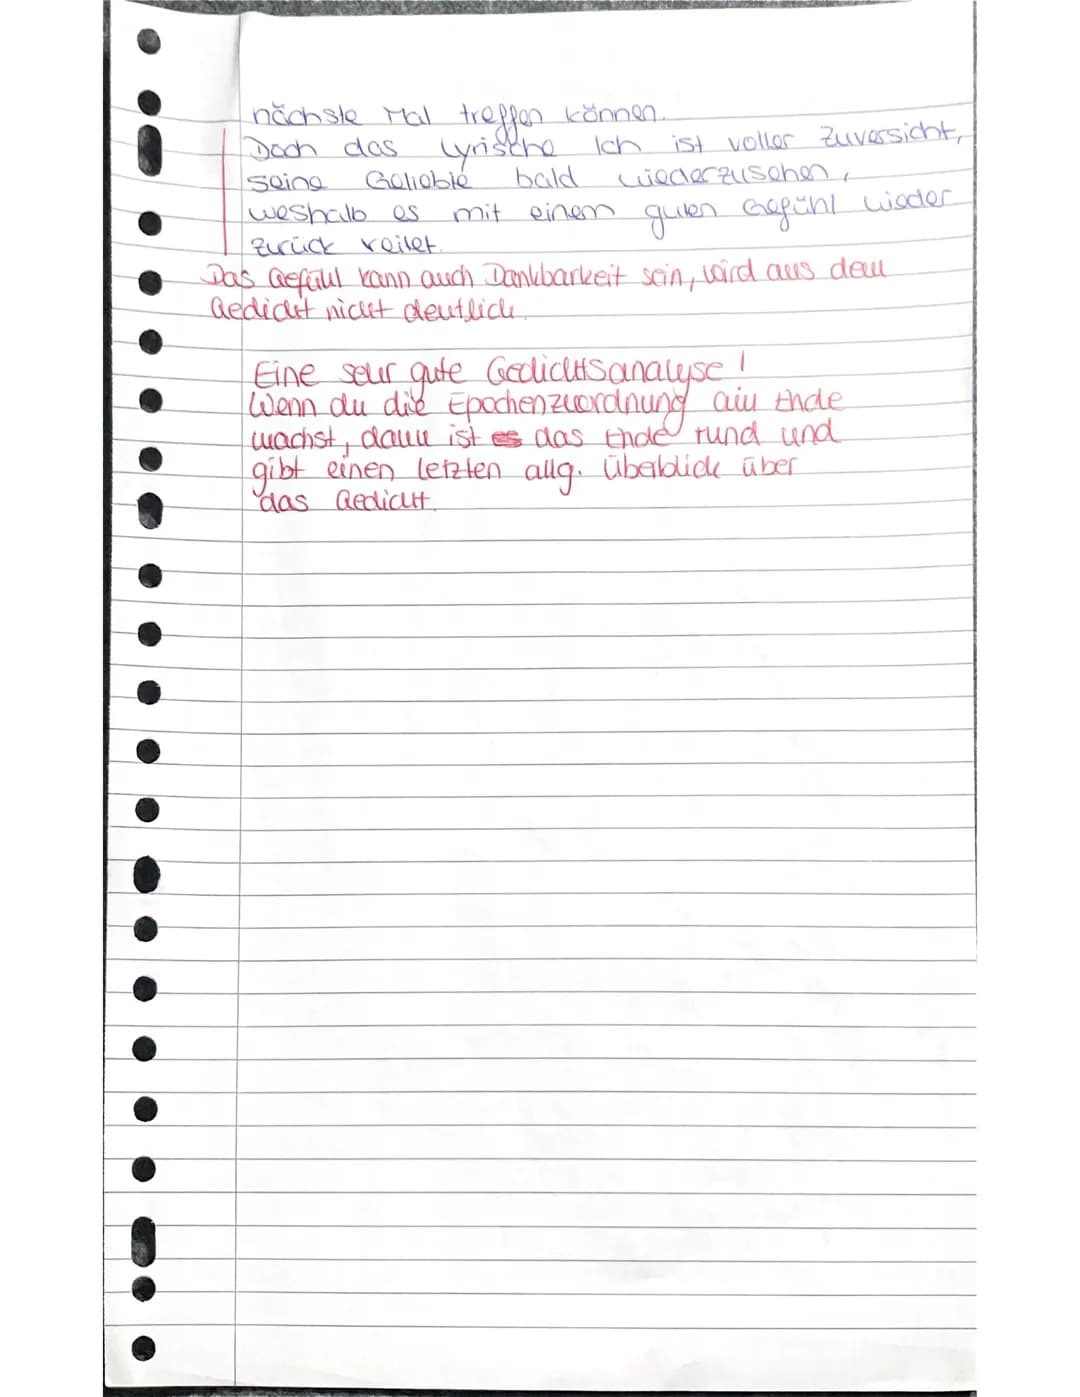 nächste Mal treffen können.
Doch das Lyrische Ich ist voller Zuversicht,
seine Geliebte bald wiederzusehen,
weshalb es mit einem guten Gefühl wieder
zurück reitet.
Das Gefühl kann auch Dankbarkeit sein, wird aus dem
Gedicht nicht deutlich.
Eine sehr gute Gedichtsanalyse!
Wenn du die Epochenzuordnung am Ende
machst, dann ist es das Ende rund und
gibt einen letzten allg. Überblick über
das Gedicht.